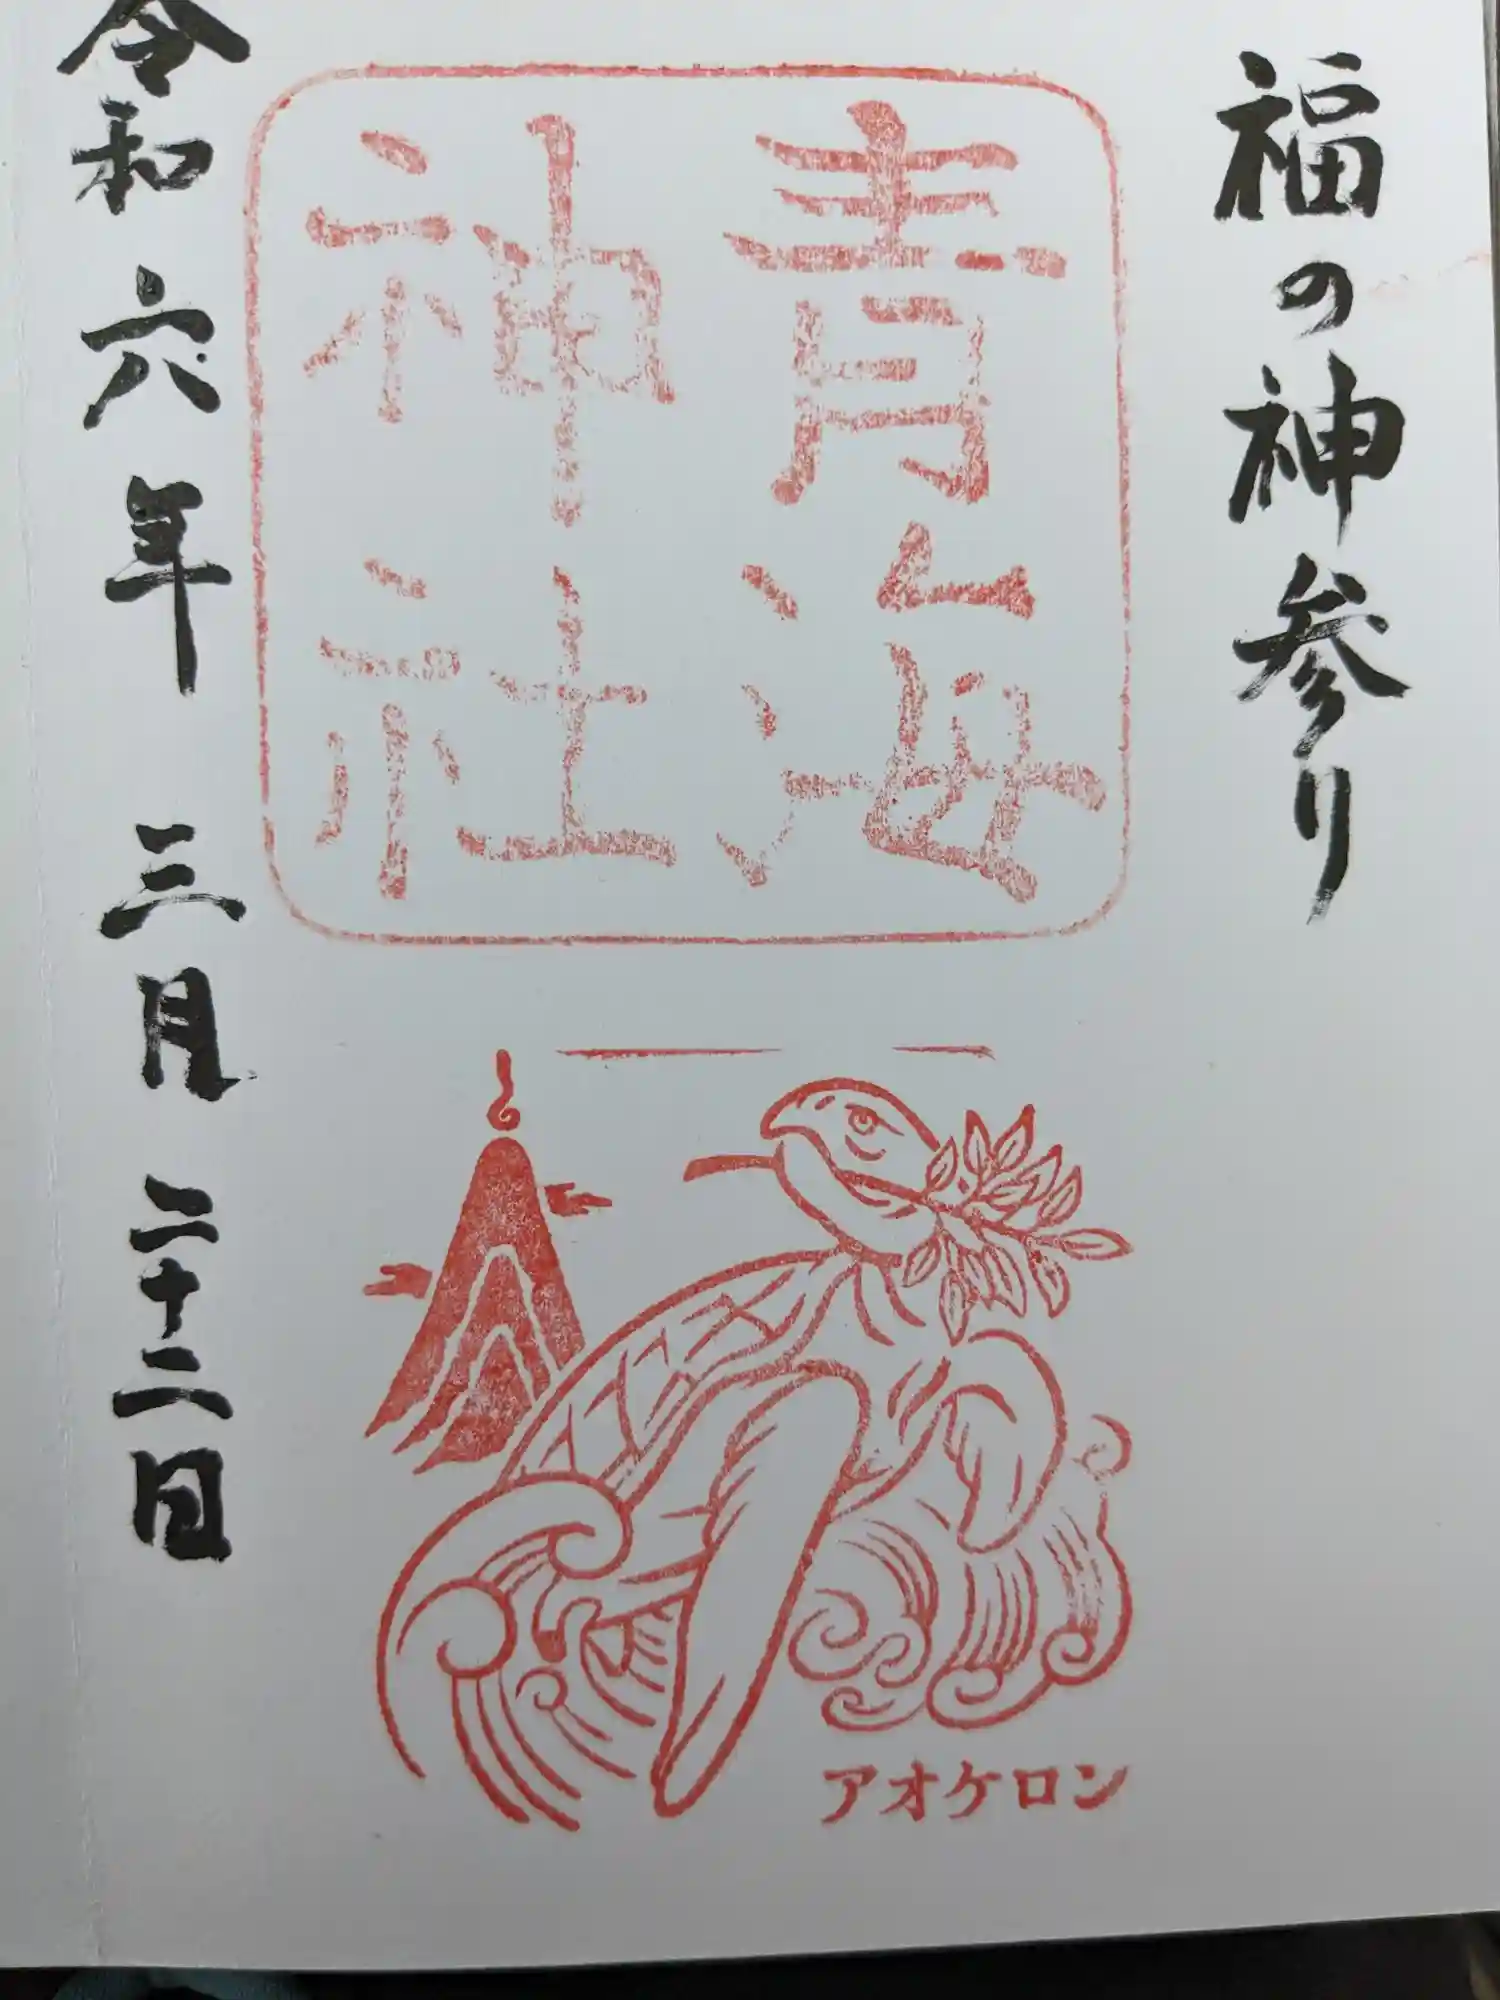 福の神参り
青海
神社
アオケロン
令和六年三月二十二日